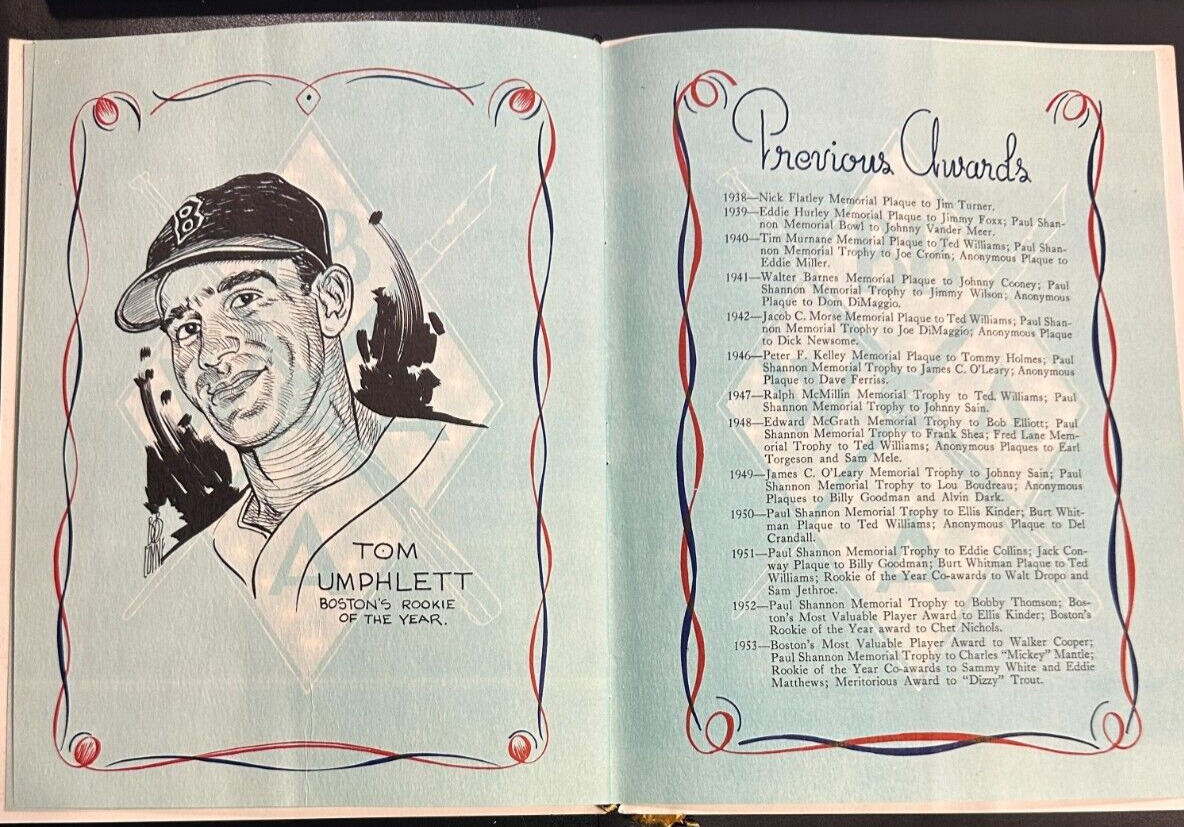 B
BOB
COYNE
TOM
UMPHLETT
BOSTON'S ROOKIE
OF THE YEAR.
Previous Awards
1938—Nick Flatley Memorial Plaque to Jim Turner.
1939—Eddie Hurley Memorial Plaque to Jimmy Foxx; Paul Shan-
non Memorial Bowl to Johnny Vander Meer.
1940—Tim Murnane Memorial Plaque to Ted Williams; Paul Shan-
non Memorial Trophy to Joe Cronin; Anonymous Plaque to
Eddie Miller.
1941—Walter Barnes Memorial Plaque to Johnny Cooney; Paul
Shannon Memorial Trophy to Jimmy Wilson; Anonymous
Plaque to Dom DiMaggio.
1942—Jacob C. Morse Memorial Plaque to Ted Williams; Paul Shan-
non Memorial Trophy to Joe DiMaggio; Anonymous Plaque
to Dick Newsome.
1946—Peter F. Kelley Memorial Plaque to Tommy Holmes; Paul
Shannon Memorial Trophy to James C. O'Leary; Anonymous
Plaque to Dave Ferriss.
1947—Ralph McMillin Memorial Trophy to Ted. Williams; Paul
Shannon Memorial Trophy to Johnny Sain.
1948—Edward McGrath Memorial Trophy to Bob Elliott; Paul
Shannon Memorial Trophy to Frank Shea; Fred Lane Mem-
orial Trophy to Ted Williams; Anonymous Plaques to Earl
Torgeson and Sam Mele.
1949—James C. O'Leary Memorial Trophy to Johnny Sain; Paul
Shannon Memorial Trophy to Lou Boudreau; Anonymous
Plaques to Billy Goodman and Alvin Dark.
1950—Paul Shannon Memorial Trophy to Ellis Kinder; Burt Whit-
man Plaque to Ted Williams; Anonymous Plaque to Del
Crandall.
1951—Paul Shannon Memorial Trophy to Eddie Collins; Jack Con-
way Plaque to Billy Goodman; Burt Whitman Plaque to Ted
Williams; Rookie of the Year Co-awards to Walt Dropo and
Sam Jethroe.
1952—Paul Shannon Memorial Trophy to Bobby Thomson; Bos-
ton's Most Valuable Player Award to Ellis Kinder; Boston's
Rookie of the Year award to Chet Nichols.
1953—Boston's Most Valuable Player Award to Walker Cooper;
Paul Shannon Memorial Trophy to Charles "Mickey" Mantle;
Rookie of the Year Co-awards to Sammy White and Eddie
Matthews; Meritorious Award to "Dizzy" Trout.